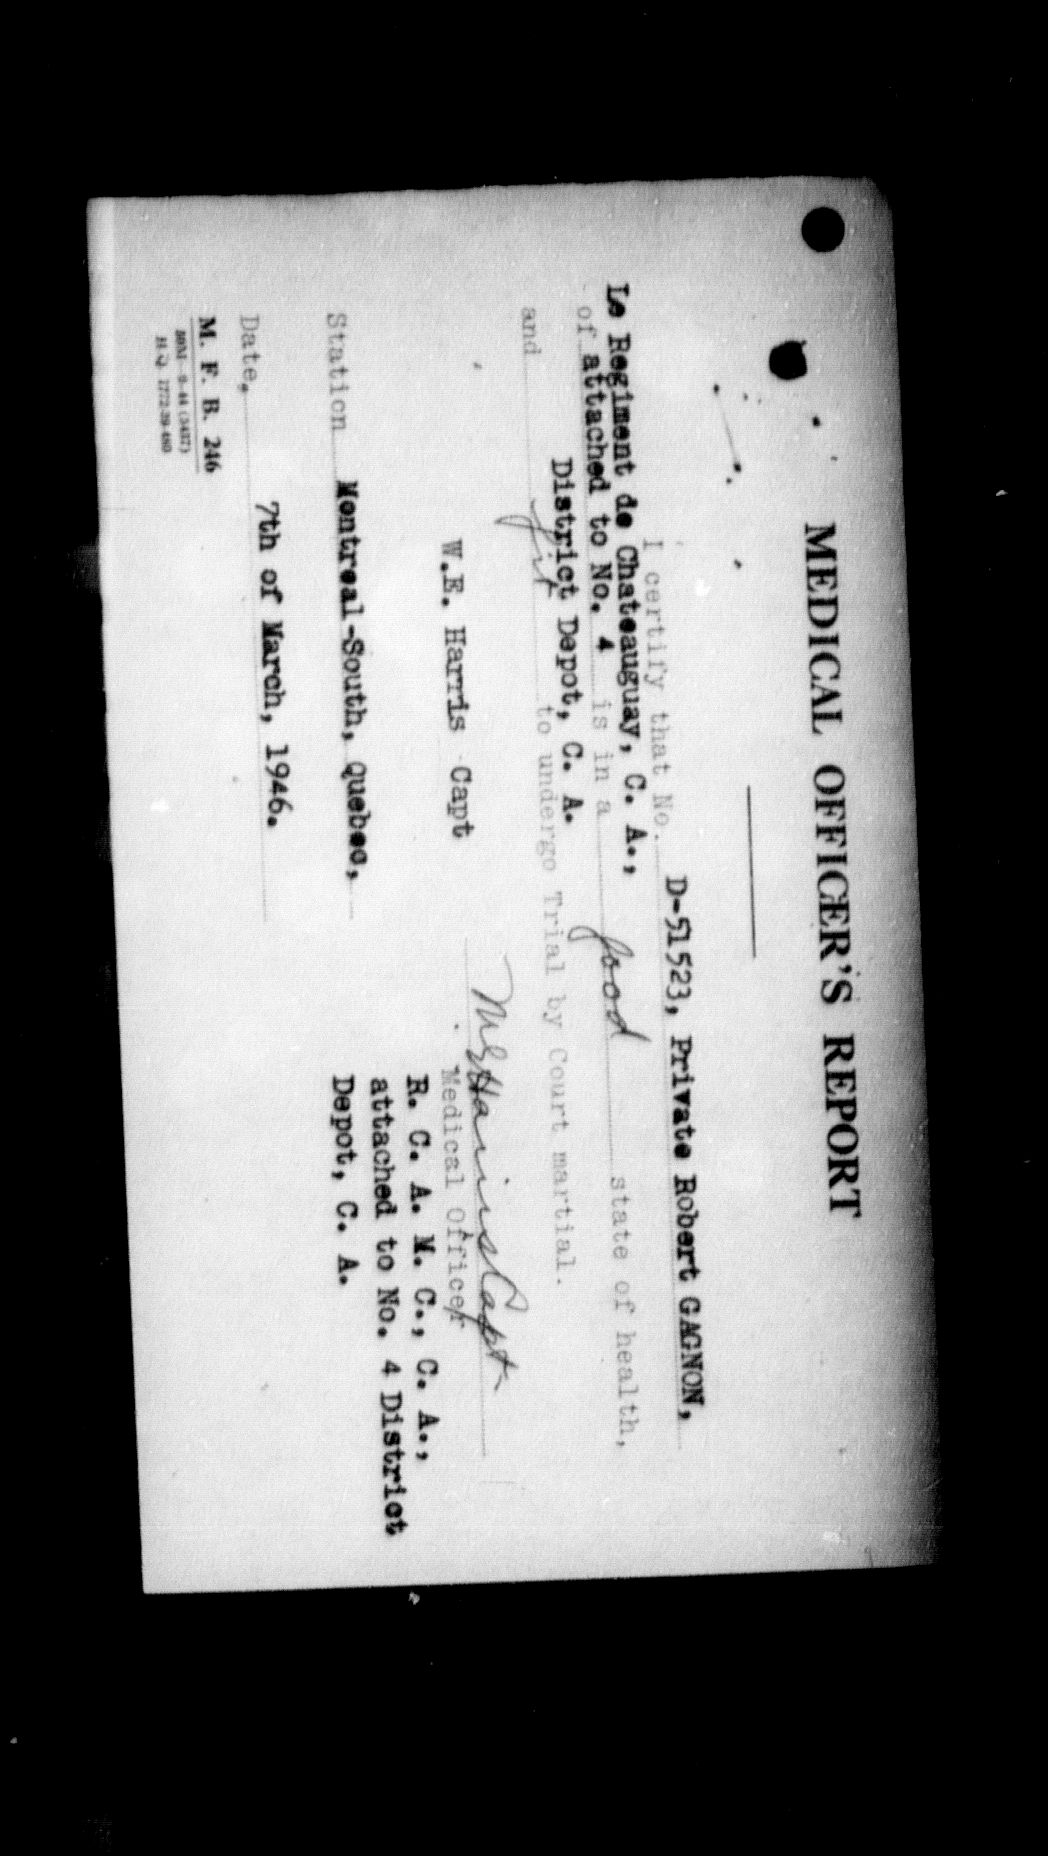 MEDICAL OFFICER'S REPORT
I certify that No. D-51523, Private Robert GAGNON,
Le Regiment de Chateauguay, C. A.,
of attached to No. 4 is in a good state of health,
District Depot, C. A.
and fit to undergo Trial by Court martial.
W.E. Harris Capt
WEHarris Capt
Medical Officer
R. C. A. M. C., C. A.,
attached to No. 4 District
Depot, C. A.
Station Montreal-South, Quebec,
Date, 7th of March, 1946.
M. F. B. 246
H.Q. 1772-39-480